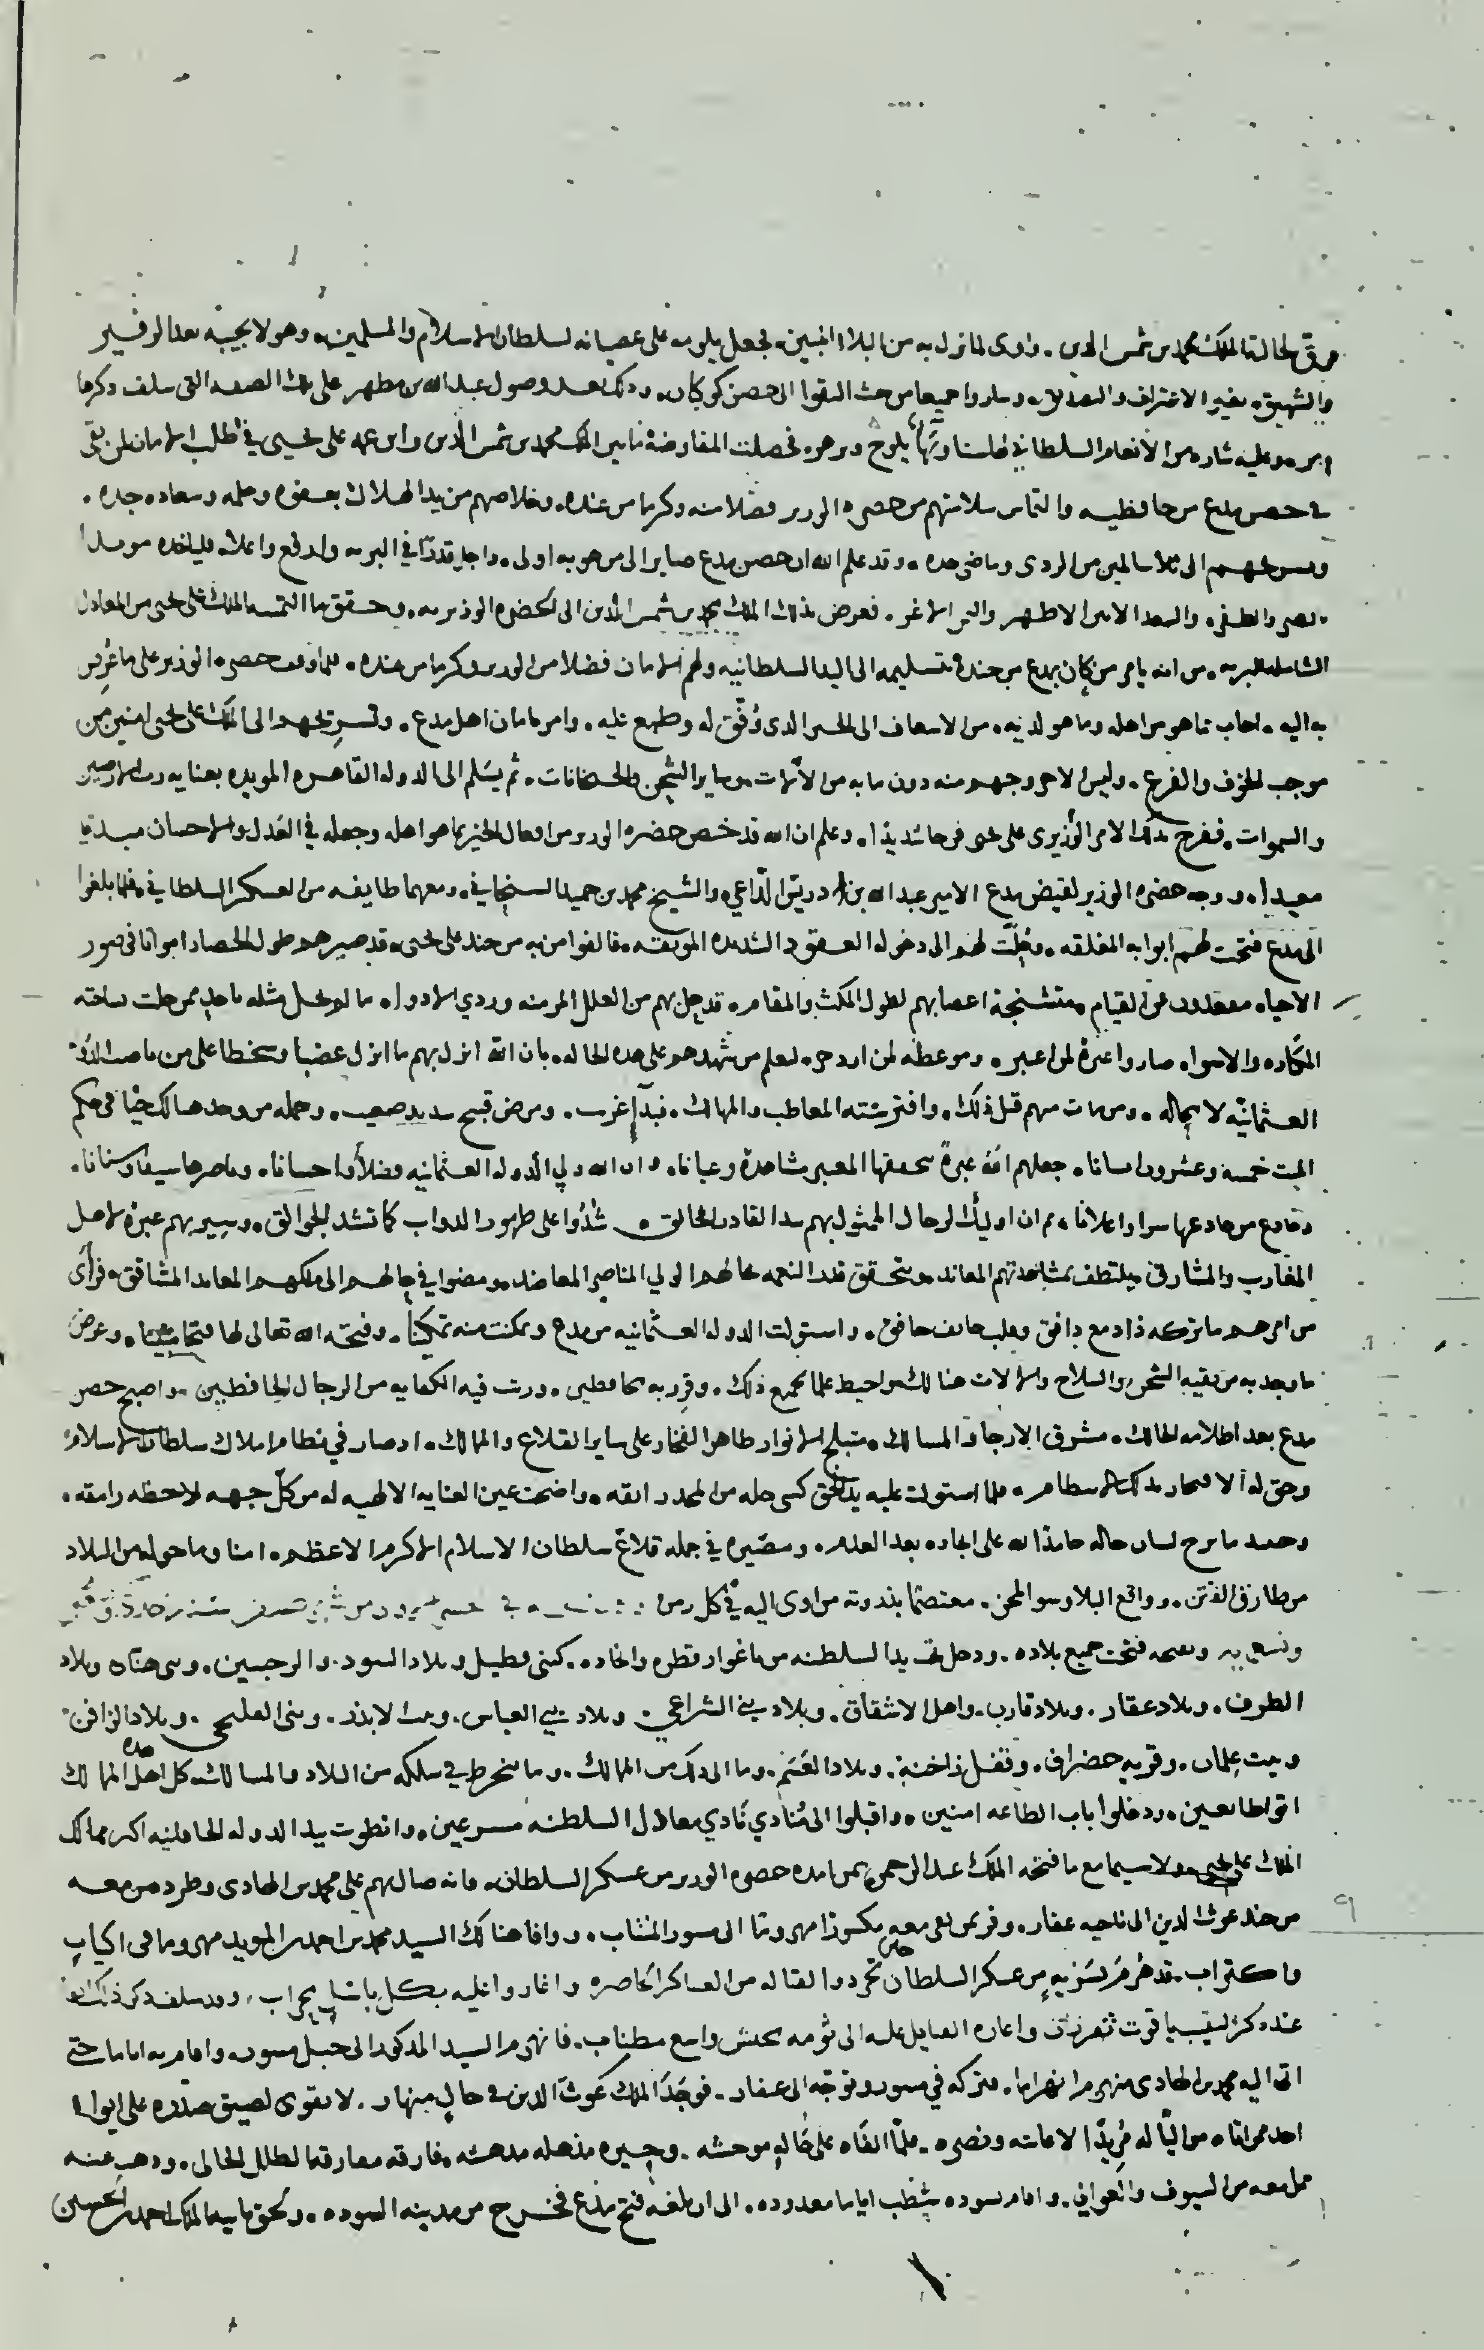 فرق لحالته الملك محمد بن شمس الدين. واوى لما نزل به من البلاء المبين. فجعل يلومه على عصيانه لسلطان الاسلام والمسلمين. وهو لا يجيبه بعد الزفير
والشهيق. بغير الاعتراف والتصديق. وساروا جميعا من حيث التقوا الى حصن كوكبان. وذلك بعد وصول عبدالله بن مطهر على تلك الصفه التى سلف ذكرها
وعليه شاره من الانعام السلطاني يلوح فحصلت المفاوضة ما بين الملك محمد بن شمس الدين وابن عمه على يحيى في طلب الامان لمن بقى
في حصن مدع من حافظيه والتماس سلامتهم من حضرة الوزير فضلا منه وكرما من عنده. وخلاصهم من يد الهلاك بعفوه وحلمه وسعادة جده.
الى ثلا سالمين من الردى وماضى حده. وقد علم الله ان حصن مدع صاير الى من هو به اولى. واجل قدرا في البريه وارفع واعلا. فلياخذه مويدا
بالنصر والظفر. والسعد الاطهر الاغر. فعرض بذلك الملك محمد بن شمس الدين الى الحضره الوزيريه. وحقق ما التمسه الملك على يحيى من المعادل
الشامله للبريه. من انه يامر من كان بمدع من جنده بتسليمه الى اليد السلطانيه ولهم الامان فضلا من الوزير وكرما من عنده. فلما وقف حضرة الوزير على ما عرض
به اليه. اجاب بما هو من اهله وما هو لديه. من الاسعاف الى الخير الذى وفق له وطبع عليه. وامر بامان اهل مدع. وتسريحهم الى الملك على يحيى امنين من
موجب الخوف والفزع. وليس الا خروجهم منه دون ما به من الآلات وساير الشحن والخفانات. ثم يسلم الى الدوله القاهره المويده بعنايه رب الارضين
والسموات. ففرح بهذا الامر الوزيرى على يحيى فرحا شديدا. وعلم ان الله قد خص حضره الوزير من افعال الخير بما هو اهله وجعله في العدل والاحسان مبديا
معيدا. ووجه حضره الوزير لقبض مدع الامير عبد الله بن ادريس الداعي والشيخ محمد بن حميد السنحاني. ومعهما طايفه من العسكر السلطاني. فلما بلغوا
الى مدع فتحت لهم ابوابه المغلقه. وحلت لهم الى دخوله العقود الشديده الموثقه. فالفوا من به من جند على يحيى. قد صيرهم طول الحصار امواتا في صور
الاحياء مقعدون عن القيام. متشنجة اعصابهم لطول المكث والمقام. قد حل بهم من العلل المزمنه وردي الادوا. ما لم يحل مثله باحد ممن حلت بساحته
المكاره والاسوا. صاروا عبرة لمن اعتبر. وموعظه لمن ازدجر. ليعلم من شهدهم على هذه الحاله. بان الله انزل بهم ما انزل غضبا وسخطا على من ناصب الدوله
العثمانيه لا محاله. ومن مات منهم قبل ذلك. وافترسته المعاطب والمهالك. وبمرض قبيح شديد صعب. وجمله من وجد هنالك حيا في حكم
الميت خمسه وعشرون انسانا. جعلهم الله عبرة يحققها المعتبر مشاهدة وعيانا. وان الله ولي الدوله العثمانيه فضلا واحسانا. وناصرها سيفا وسنانا.
وخادع من خادعها سرا واعلانا. ثم ان اوليك الرجال الممثول بهم بيد القادر الخالق. شدوا على ظهور الدواب كما تشد الجوالق. وسير بهم عبرة لاهل
المغارب والمشارق. ليتعظ بمشاهدتهم المعاند. ويتحقق قدر النعمه بحالهم الولي المناصر المعاضد. ومضوا في حالهم الى ملكهم المعاند المشاقق. فراى
من امرهم ما تركه ذا دمع دافق وقلب خايف خافق. واستولت الدوله العثمانيه من مدع وتمكنت منه تمكينا. وفتحه الله تعالى لها فتحا مبينا. وعرض
ما وجد به من بقيه الشحن والسلاح والالات هنالك واحيط علما بجميع ذلك. وقرر به محافظين. ورتب فيه الكفايه من الرجال الحافظين. واصبح حصن
مدع بعد اظلامه الحالك. مشرق الارجا والمسالك. متبلج الانوار ظاهر الفخار على ساير القلاع والممالك. اذ صار في نظام املاك سلطان الاسلام
وحق له الافتخار بذلك الانتظام. فلما استولت عليه يد الحق كسى حله من المجد رايقه. واضحت عين العنايه الالهيه له من كل جهه لاحظه رامقه.
وحصد ما برح لسان حاله حامدا لله على ايجاده بعد العدم. ومصيره في جمله قلاع سلطان الاسلام الاكرم الاعظم. امنا وما حوله من البلاد
من طارق الفتن. وواقع البلا وسو المحن. معتصما بذروته من اوى اليه في كل زمن
وبفتحه فتحت جميع بلاده. ودخل تحت يد السلطنه من ماغوار قطره وانجاده. كبنى وطيل وبلاد السود. والرجبين. وبلاد
الطرف. وبلاد عقار. وبلاد قارب. واهل الاشقاق. وبلاد بني الشراعي. وبلاد بني العباس. وبيت الابذر. وبنى العليجى. وبلاد
وبيت علمان. وقريه حضران. وقفل ذاخنة. وبلاد الغنم. وما الى ذلك من الممالك. وما ينخرط في سلكه من البلاد والمسالك. كل اهل هذه الممالك
اتوا طايعين. ودخلوا باب الطاعه امنين. واقبلوا الى منادي نادي معادل السلطنه مسرعين. وانطوت بيد الدوله الخاقانيه اكثر ممالك
الملك على يحيى. ولا سيما مع ما فتحه الملك عبد الرحمن بمن امده حضرة الوزير من عسكر السلطان. فانه صال بهم على محمد بن الهادى وطرده ومن معه
من جند غوث الدين الى ناحيه عفار. وفر بمن بقى معه مكسورا مهزوما الى مسور المنتاب. ووافا هنالك السيد محمد بن احمد بن المويد مهزوما في اكياب
واكتراب. قد هزم من عسكر السلطان حين تجردوا لقتاله من العساكر الحاضره واغاروا عليه بكل باسل بحراب. وقد سلف ذكر ذلك
عند ذكر النقيب ياقوت ثغرنات واغاره القبايل عليه الى ثومه بجيش واسع مطناب. فانهزم السيد المذكور الى جبل مسور. واقام به اياما حتى
اتى اليه محمد بن الهادى منهزما انهزاما. فتركه في مسور وتوجه الى عفار. فوجد الملك غوث الدين في حال منهار. لا يقوى لضيق صدره على ايواء
احد ممن اتاه مواليا له مريدا لاعانته ونصره. فلما الفاه على حاله موحشه. وحيره مذهله مدهشه. فارقه مفارقه الطلل الخالى. وذهب عنه
بمن معه من السيوف والعوالي. واقام بسوده شظب اياما معدوده. الى ان بلغه فتح مدع فخرج من مدينه السوده. ولحق الملك احمد بن الحسين